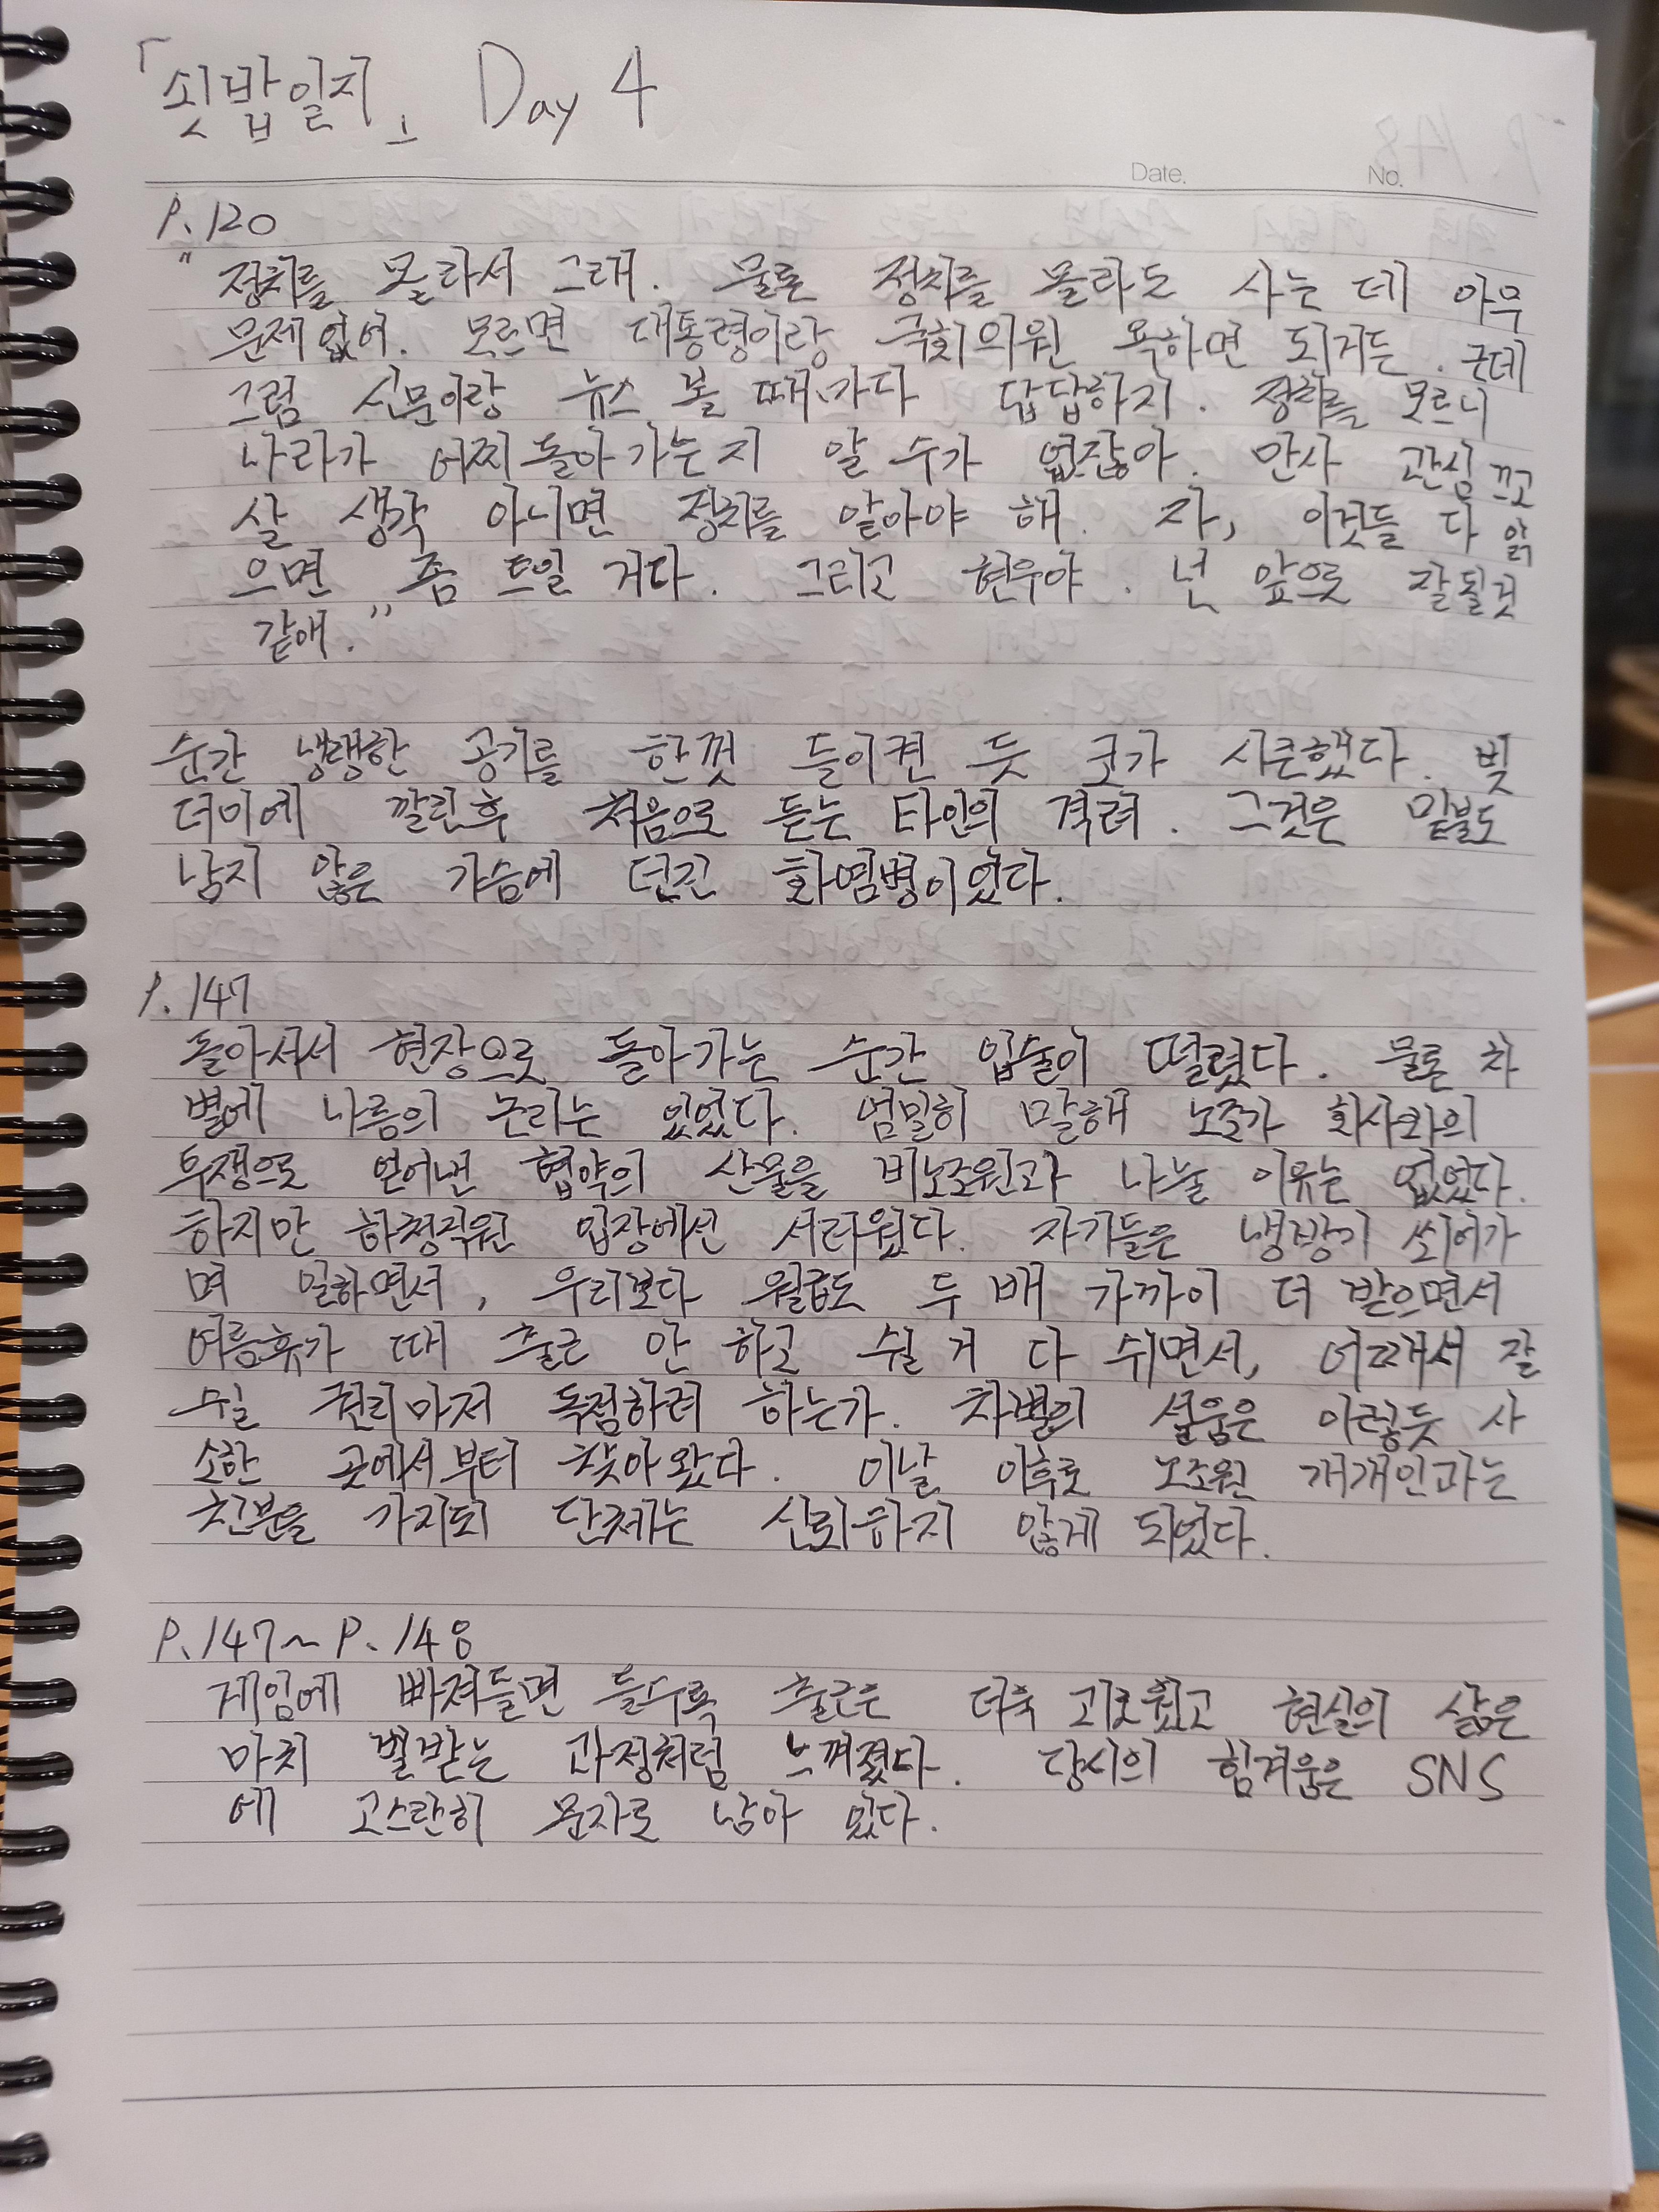 「쇳밥일지」 Day 4
Date. No.
P. 120
"정치를 몰라서 그래. 물론 정치를 몰라도 사는 데 아무
문제없어. 모르면 대통령이랑 국회의원 욕하면 되거든. 근데
그럼 신문이랑 뉴스 볼 때마다 답답하지. 정치를 모르니
나라가 어찌 돌아가는지 알 수가 없잖아. 만사 관심 끄고
살 생각 아니면 정치를 알아야 해. 자, 이것들 다 읽
으면 좀 트일 거다. 그리고 현우야. 넌 앞으로 잘될 것
같애."
순간 냉랭한 공기를 한껏 들이켠 듯 코가 시큰했다. 빚
더미에 깔린 후 처음으로 듣는 타인의 격려. 그것은 밑불도
남지 않은 가슴에 던진 화염병이었다.
P. 147
돌아서서 현장으로 돌아가는 순간 입술이 떨렸다. 물론 차
별에 나름의 논리는 있었다. 엄밀히 말해 노조가 회사와의
투쟁으로 얻어낸 협약의 산물을 비노조원과 나눌 이유는 없었다.
하지만 하청직원 입장에선 서러웠다. 자기들은 냉방기 쐬어가
며 일하면서, 우리보다 월급도 두 배 가까이 더 받으면서
여름휴가 때 출근 안 하고 쉴 거 다 쉬면서, 어째서 잘
수일 권리마저 독점하려 하는가. 차별의 설움은 이렇듯 사
소한 곳에서부터 찾아왔다. 이날 이후로 노조원 개개인과는
친분을 가지되 단체는 신뢰하지 않게 되었다.
P. 147~P. 148
게임에 빠져들면 들수록 출근은 더욱 괴로웠고 현실의 삶은
마치 벌받는 과정처럼 느껴졌다. 당시의 힘겨움은 SNS
에 고스란히 문자로 남아 있다.